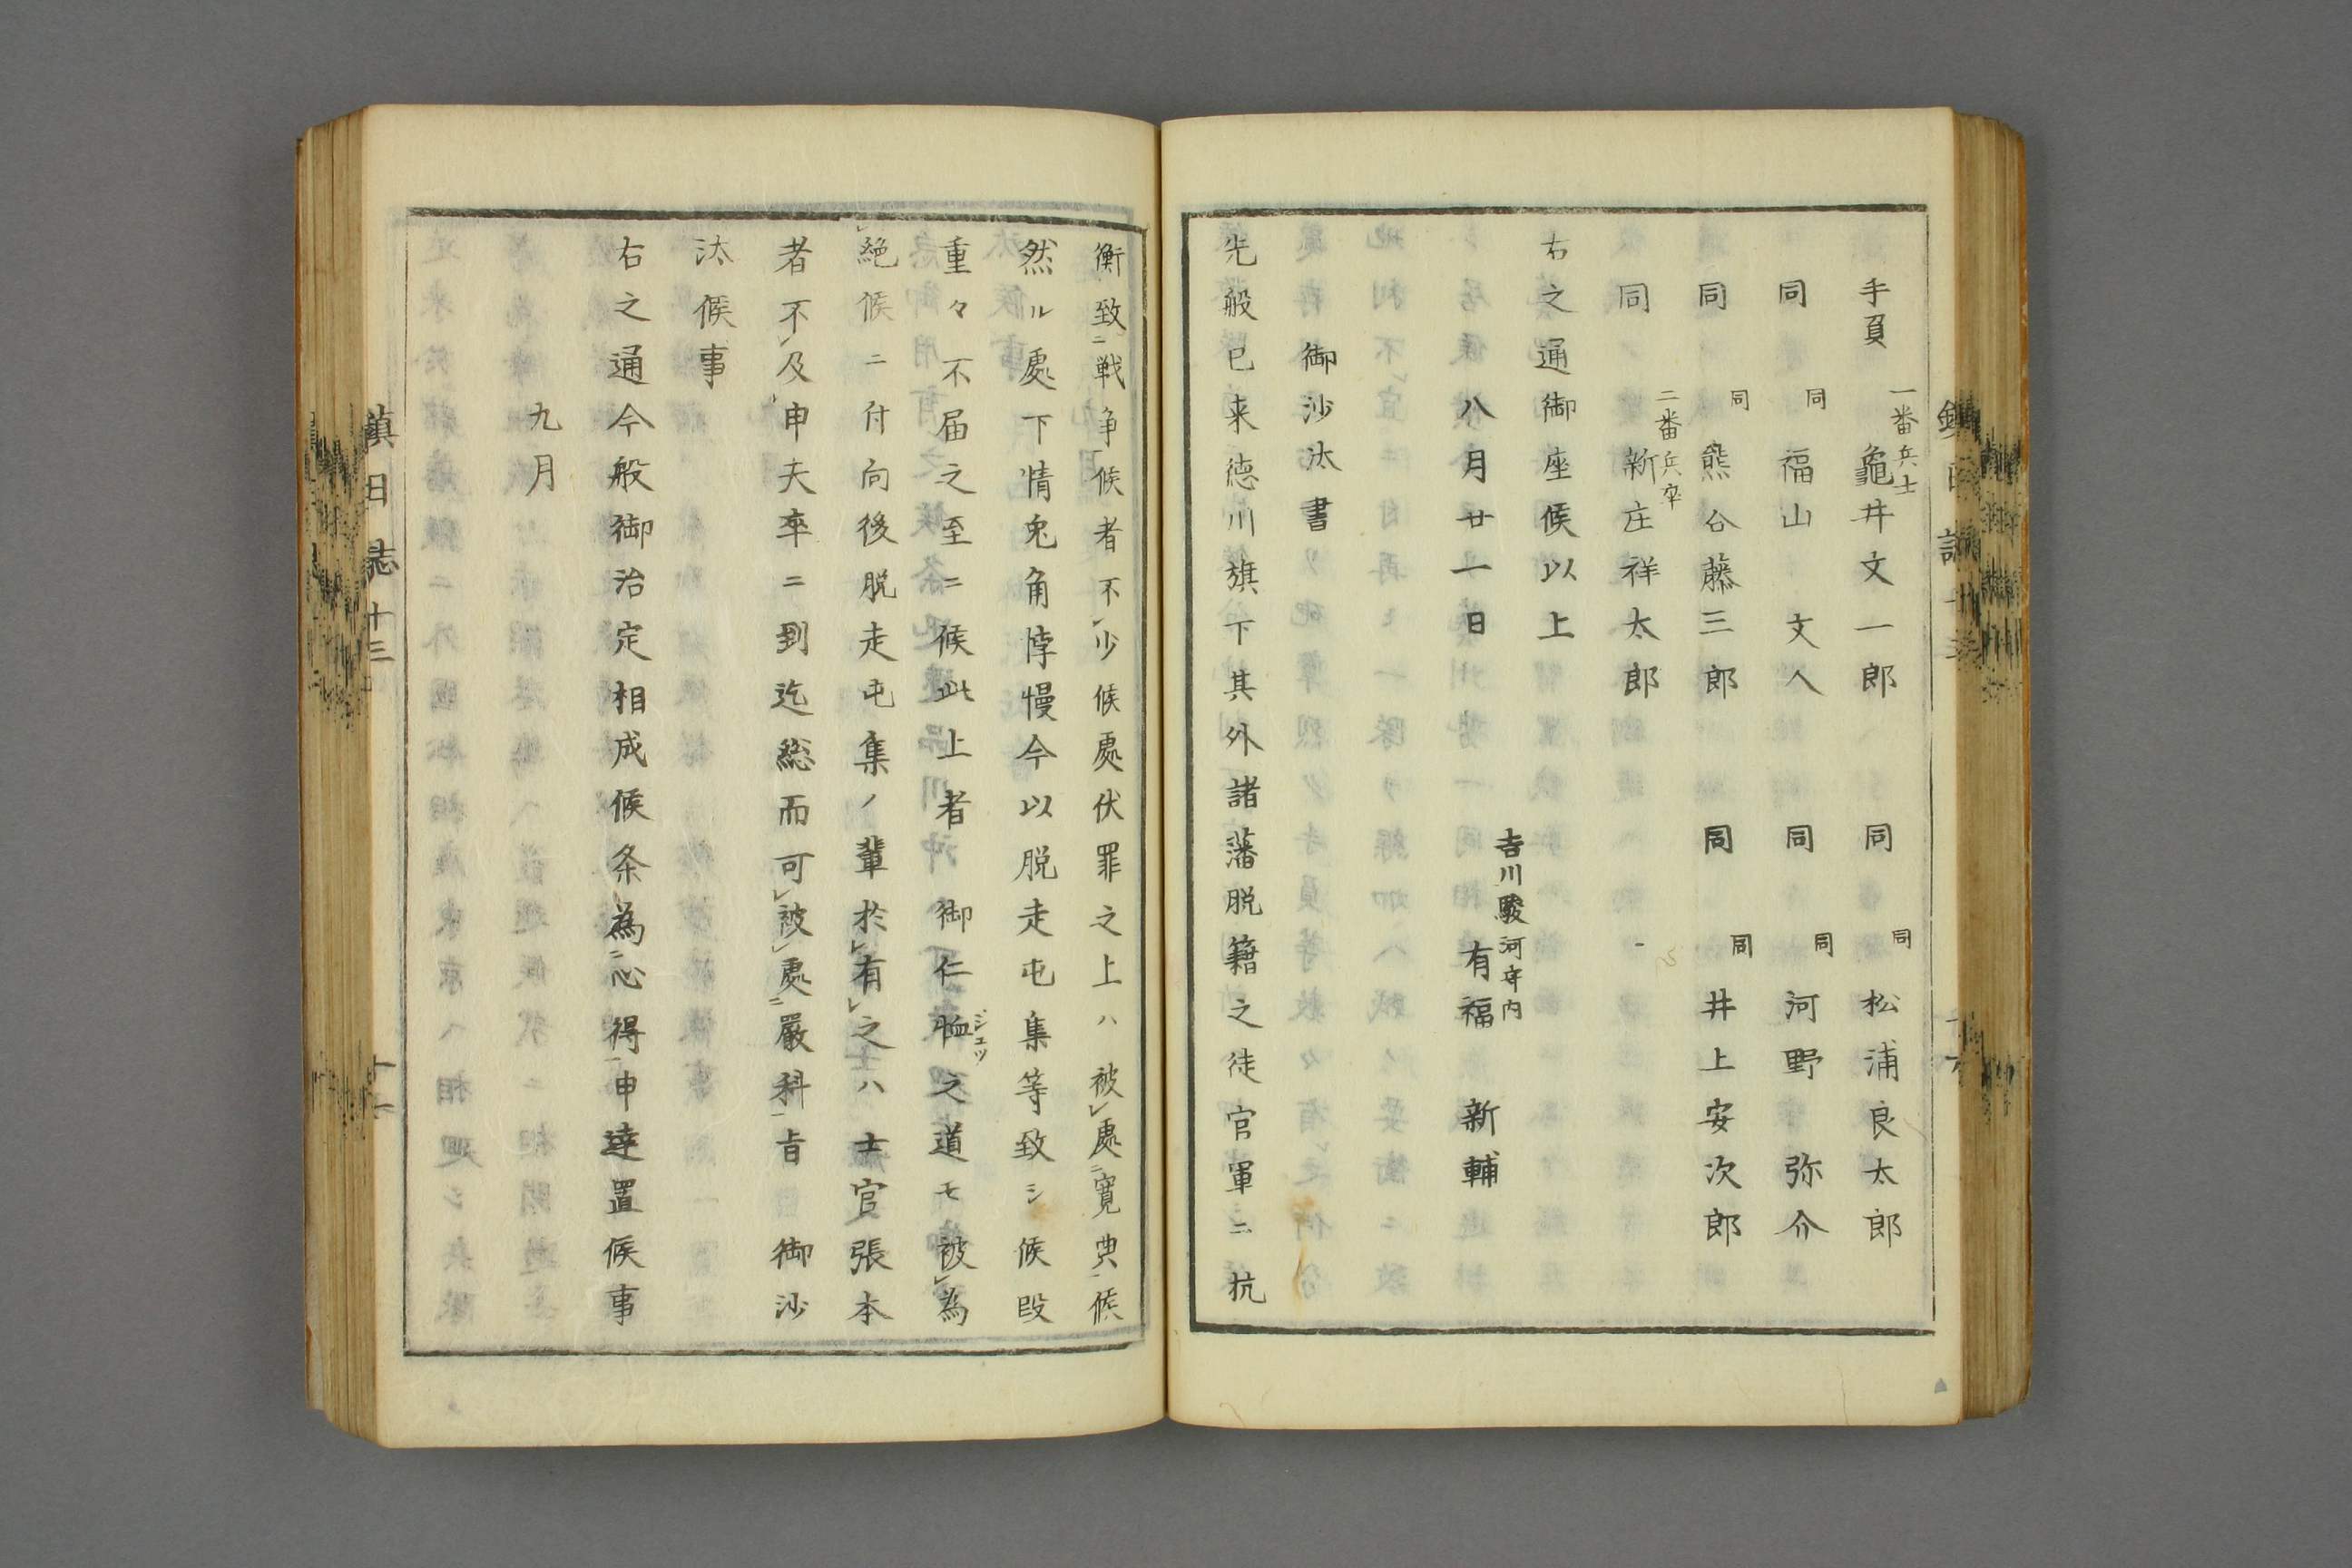 手負 一番兵士 龜井文一郎 同 同 松浦良太郎
同 同 福山文人 同 同 河野弥介
同 同 熊谷藤三郎 同 同 井上安次郎
同 二番兵卒 新庄祥太郎
右之通御座候以上
八月廿一日 吉川駿河守内 有福新輔
御沙汰書
先般已来徳川旗下其外諸藩脱籍之徒官軍ニ抗
衡致二戦争一候者不レ少候處伏罪之上ハ被レ處二寛典一候
然ル處下情兎角悖慢今以脱走屯集等致シ候段
重々不届之至ニ候此上者御仁恤ジュツ之道モ被レ為
レ絶候ニ付向後脱走屯集ノ輩於レ有レ之ハ士官張本
者不レ及申夫卒ニ到迄総而可レ被レ處二嚴科一旨御沙
汰候事
右之通今般御治定相成候条為二心得一申達置候事
九月
鎮日志十三